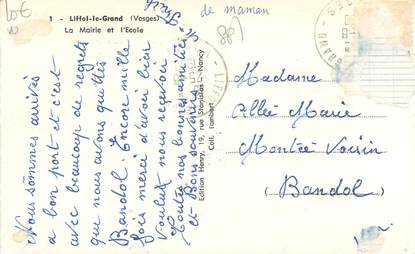 1 - Liffol-le-Grand (Vosges)
La Mairie et l'Ecole
de maman
Nous sommes arrivés
a bon port et c'est
avec beaucoup de regrets
que nous avons quittés
Bandol. Encore mille
fois merci d'avoir bien
voulut nous recevoir
toutes nos bonnes amitiés
et Bons souvenirs
Edition Henry, 19, rue Stanislas - Nancy
Coll. Lambert
Madame
Allée Marie
Montée Voisin
(Bandol)